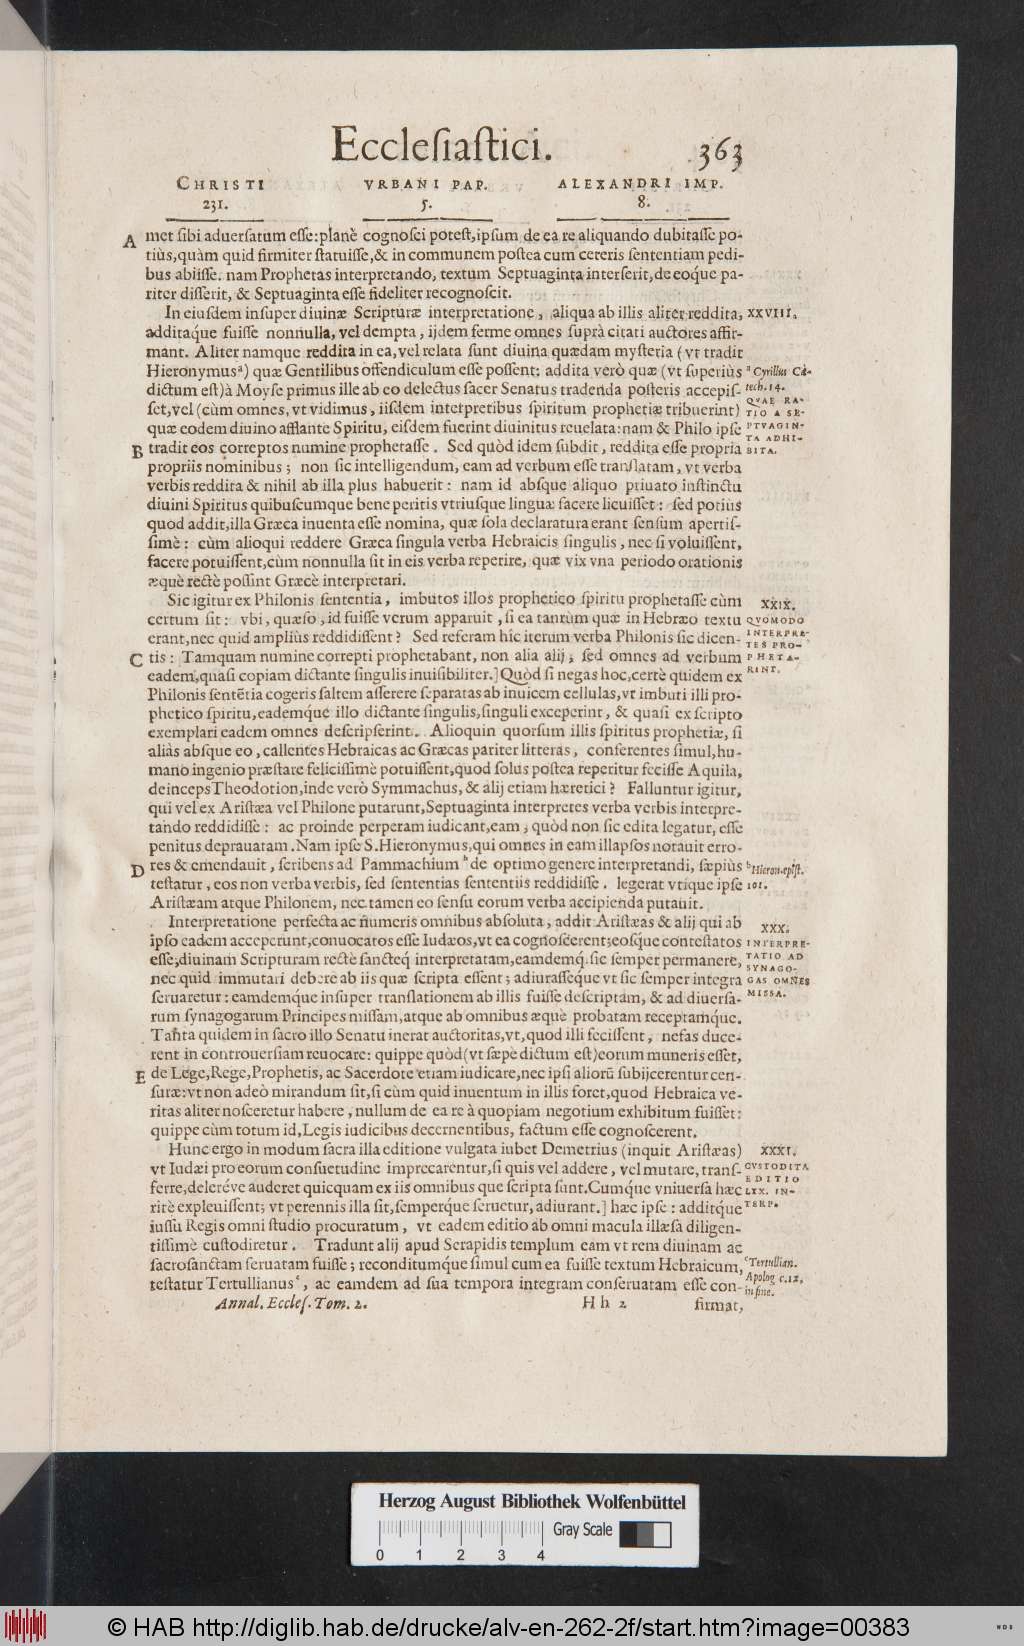 Ecclesiastici. 363
CHRISTI VRBANI PAP. ALEXANDRI IMP.
231. 5. 8.
A met sibi aduersatum esse: planè cognosci potest, ipsum de ea re aliquando dubitasse po-
tiùs, quàm quid firmiter statuisse, & in communem postea cum ceteris sententiam pedi-
bus abiisse. nam Prophetas interpretando, textum Septuaginta interserit, de eoque pa-
riter disserit, & Septuaginta esse fideliter recognoscit.
In eiusdem insuper diuinæ Scripturæ interpretatione, aliqua ab illis aliter reddita, XXVIII.
additaque fuisse nonnulla, vel dempta, ijdem ferme omnes suprà citati auctores affir-
mant. Aliter namque reddita in ea, vel relata sunt diuina quædam mysteria (vt tradit
Hieronymusᵃ) quæ Gentilibus offendiculum esse possent; addita verò quæ (vt superiùs ᵃ Cyrillus Ca-
dictum est) à Moyse primus ille ab eo delectus sacer Senatus tradenda posteris accepis- tech. 14.
set, vel (cùm omnes, vt vidimus, iisdem interpretibus spiritum prophetiæ tribuerint) QVAE RA-
TIO A SE-
quæ eodem diuino afflante Spiritu, eisdem fuerint diuinitus reuelata: nam & Philo ipse PTVAGIN-
TA ADHI-
B tradit eos correptos numine prophetasse. Sed quòd idem subdit, reddita esse propria BITA.
propriis nominibus; non sic intelligendum, eam ad verbum esse translatam, vt verba
verbis reddita & nihil ab illa plus habuerit: nam id absque aliquo priuato instinctu
diuini Spiritus quibuscumque bene peritis vtriusque linguæ facere licuisset: sed potiùs
quod addit, illa Græca inuenta esse nomina, quæ sola declaratura erant sensum apertis-
simè: cùm alioqui reddere Græca singula verba Hebraicis singulis, nec si voluissent,
facere potuissent, cùm nonnulla sit in eis verba reperire, quæ vix vna periodo orationis
æquè rectè possint Græcè interpretari.
Sic igitur ex Philonis sententia, imbutos illos prophetico spiritu prophetasse cùm XXIX.
certum sit: vbi, quæso, id fuisse verum apparuit, si ea tantùm quæ in Hebræo textu QVOMODO
erant, nec quid ampliùs reddidissent? Sed referam hîc iterum verba Philonis sic dicen- INTERPRE-
TES PRO-
C tis: Tamquam numine correpti prophetabant, non alia alij, sed omnes ad verbum PHETA-
eadem, quasi copiam dictante singulis inuisibiliter.] Quòd si negas hoc, certè quidem ex RINT.
Philonis sentẽtia cogeris saltem asserere separatas ab inuicem cellulas, vt imbuti illi pro-
phetico spiritu, eademq́ue illo dictante singulis, singuli exceperint, & quasi ex scripto
exemplari eadem omnes descripserint. Alioquin quorsum illis spiritus prophetiæ, si
aliàs absque eo, callentes Hebraicas ac Græcas pariter litteras, conferentes simul, hu-
mano ingenio præstare felicissimè potuissent, quod solus postea reperitur fecisse Aquila,
deinceps Theodotion, inde verò Symmachus, & alij etiam hæretici? Falluntur igitur,
qui vel ex Aristæa vel Philone putarunt, Septuaginta interpretes verba verbis interpre-
tando reddidisse: ac proinde perperam iudicant, eam, quòd non sic edita legatur, esse
penitus deprauatam. Nam ipse S. Hieronymus, qui omnes in eam illapsos notauit erro-
D res & emendauit, scribens ad Pammachium ᵇ de optimo genere interpretandi, sæpiùs ᵇ Hieron. epist.
testatur, eos non verba verbis, sed sententias sententiis reddidisse. legerat vtique ipse 101.
Aristæam atque Philonem, nec tamen eo sensu eorum verba accipienda putauit.
Interpretatione perfecta ac numeris omnibus absoluta, addit Aristæas & alij qui ab XXX.
ipso eadem acceperunt, conuocatos esse Iudæos, vt ea cognoscerent; eosq́ue contestatos INTERPRE-
esse, diuinam Scripturam rectè sancteq́ interpretatam, eamdemq́. sic semper permanere, TATIO AD
SYNAGO-
nec quid immutari debere ab iis quæ scripta essent; adiurasseque vt sic semper integra GAS OMNES
seruaretur: eamdemque insuper translationem ab illis fuisse descriptam, & ad diuersa- MISSA.
rum synagogarum Principes missam, atque ab omnibus æquè probatam receptamque.
Tanta quidem in sacro illo Senatu inerat auctoritas, vt, quod illi fecissent, nefas duce-
rent in controuersiam reuocare: quippe quòd (vt sæpè dictum est) eorum muneris esset,
E de Lege, Rege, Prophetis, ac Sacerdote etiam iudicare, nec ipsi aliorũ subijcerentur cen-
suræ: vt non adeò mirandum sit, si cùm quid inuentum in illis foret, quod Hebraica ve-
ritas aliter nosceretur habere, nullum de ea re à quopiam negotium exhibitum fuisset:
quippe cùm totum id, Legis iudicibus decernentibus, factum esse cognoscerent.
Hunc ergo in modum sacra illa editione vulgata iubet Demetrius (inquit Aristæas) XXXI.
vt Iudæi pro eorum consuetudine imprecarentur, si quis vel addere, vel mutare, trans- CVSTODITA
ferre, deleréve auderet quicquam ex iis omnibus que scripta sunt. Cumq́ue vniuersa hæc EDITIO
LXX. IN-
ritè expleuissent; vt perennis illa sit, semperque seruetur, adiurant.] hæc ipse: additq́ue TERP.
iussu Regis omni studio procuratum, vt eadem editio ab omni macula illæsa diligen-
tissimè custodiretur. Tradunt alij apud Serapidis templum eam vt rem diuinam ac
sacrosanctam seruatam fuisse; reconditumq́ue simul cum ea fuisse textum Hebraicum, ᶜ Tertullian.
testatur Tertullianusᶜ, ac eamdem ad sua tempora integram conseruatam esse con- Apolog c. 12.
in fine.
Annal. Eccles. Tom. 2. Hh 2 firmat,
Herzog August Bibliothek Wolfenbüttel
Gray Scale
0 1 2 3 4
© HAB http://diglib.hab.de/drucke/alv-en-262-2f/start.htm?image=00383